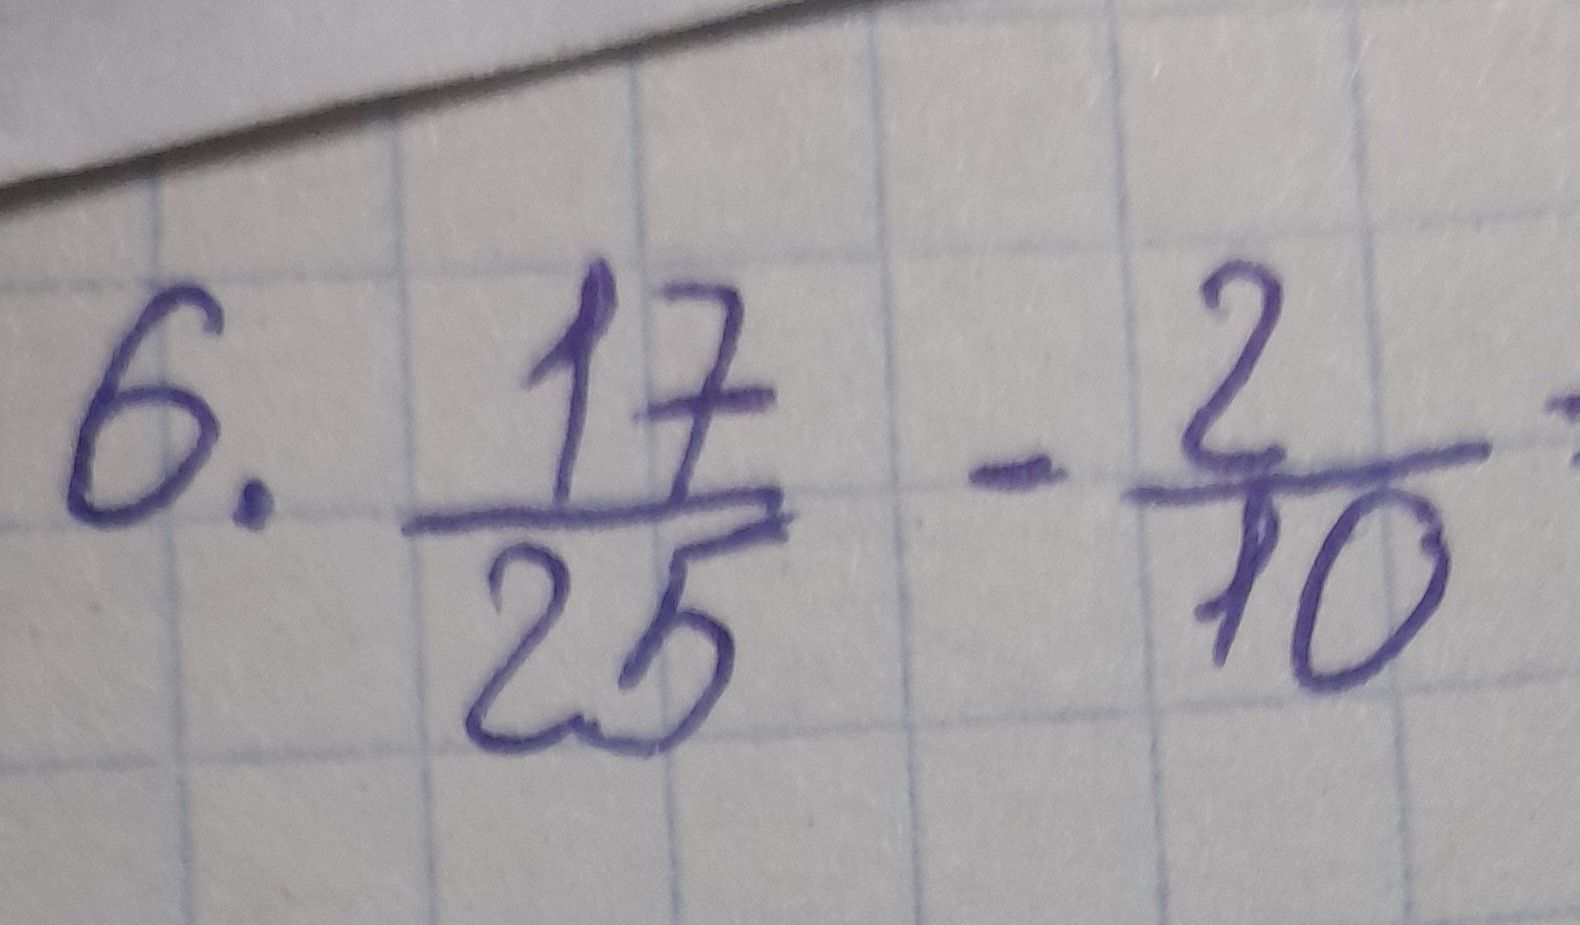 6. 17/25 - 2/10 =